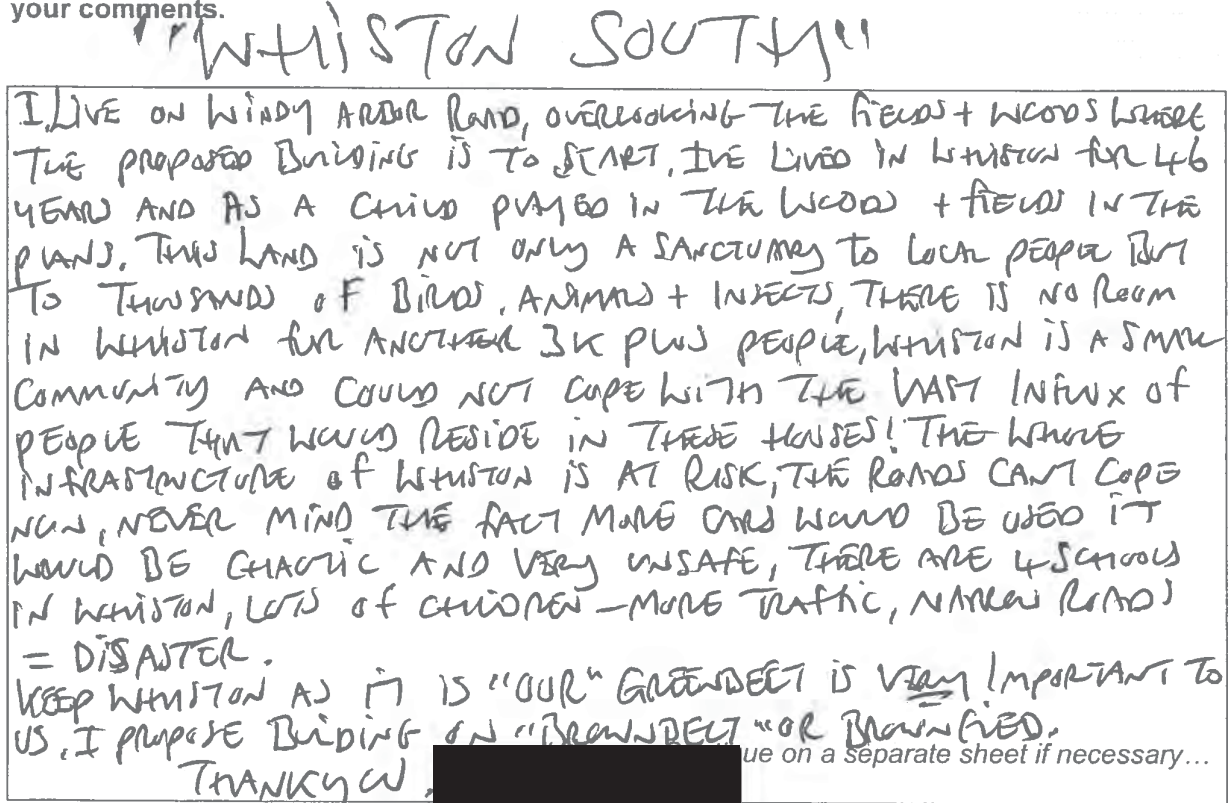 your comments.
"WHISTON SOUTH"
I LIVE ON WINDY ARBOR ROAD, OVERLOOKING THE FIELDS + WOODS WHERE
THE PROPOSED BUILDING IS TO START, IVE LIVED IN WHISTON FOR 46
YEARS AND AS A CHILD PLAYED IN THE WOODS + FIELDS IN THE
PLANS. THIS LAND IS NOT ONLY A SANCTUARY TO LOCAL PEOPLE BUT
TO THOUSANDS OF BIRDS, ANIMALS + INSECTS, THERE IS NO ROOM
IN WHISTON FOR ANOTHER 3K PLUS PEOPLE, WHISTON IS A SMALL
COMMUNITY AND COULD NOT COPE WITH THE VAST INFLUX OF
PEOPLE THAT WOULD RESIDE IN THESE HOUSES! THE WHOLE
INFRASTRUCTURE OF WHISTON IS AT RISK, THE ROADS CANT COPE
NOW, NEVER MIND THE FACT MORE CARS WOULD BE USED IT
WOULD BE CHAOTIC AND VERY UNSAFE, THERE ARE 4 SCHOOLS
IN WHISTON, LOTS OF CHILDREN - MORE TRAFFIC, NARROW ROADS
= DISASTER.
KEEP WHISTON AS IT IS "OUR" GREENBELT IS VERY IMPORTANT TO
US. I PROPOSE BUILDING ON "BROWNBELT" OR BROWNFIELD.
ue on a separate sheet if necessary...
THANKYOU.